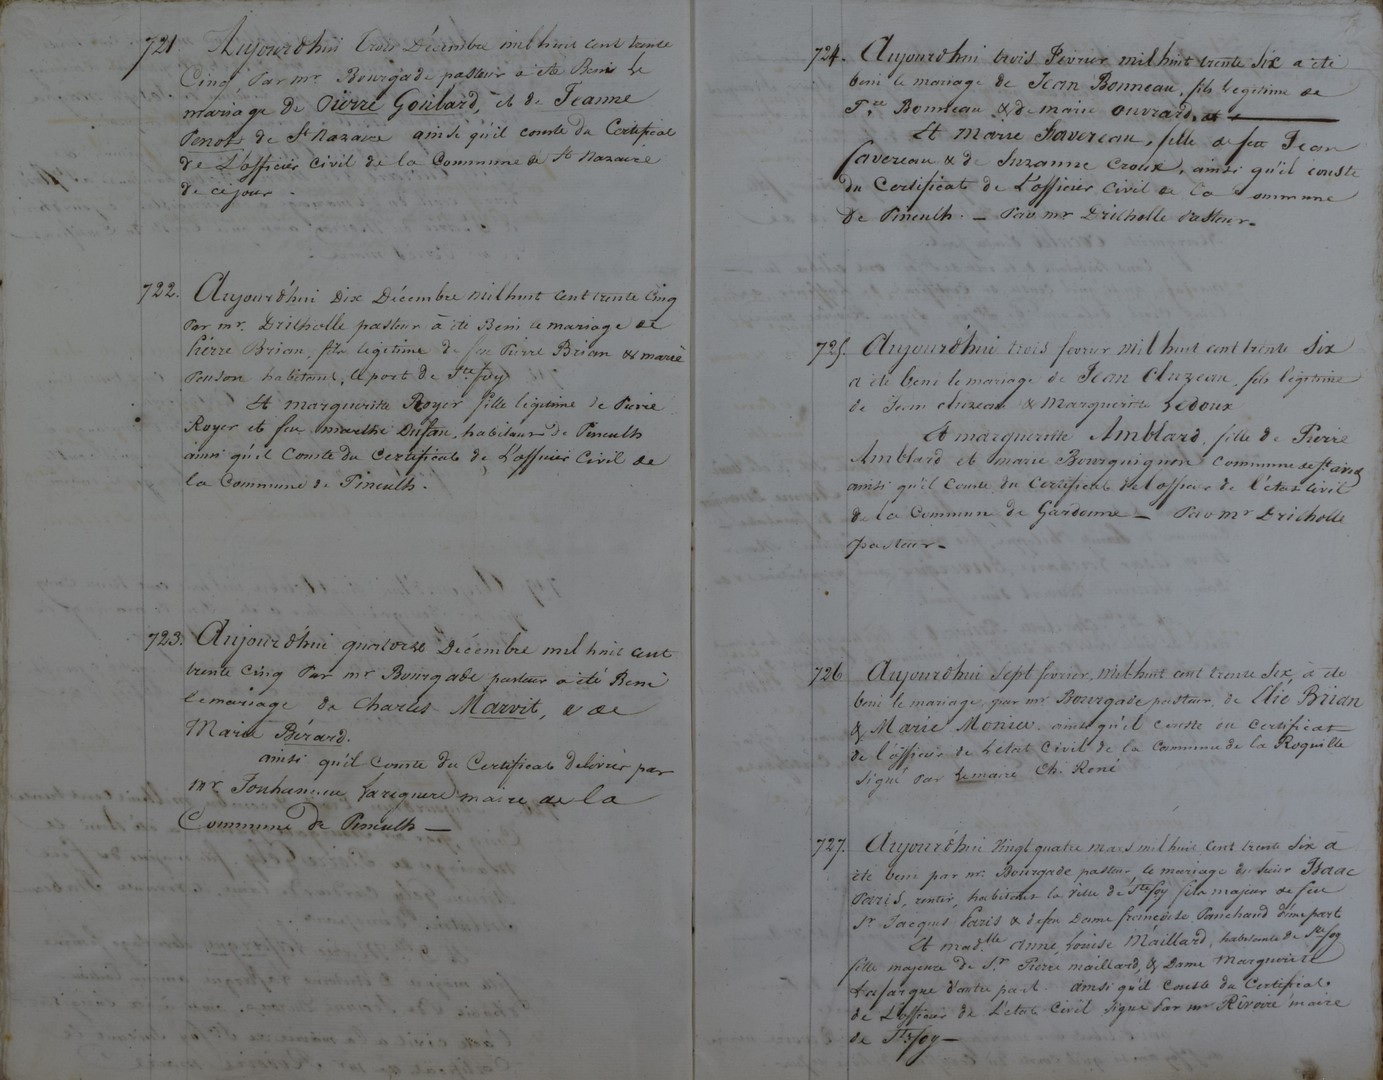 721 Aujourdhui trois Décembre mil huit cent trente
Cinq, Par mr Bourgade pasteur a été Beni le
mariage de Pierre Goulard, et de Jeanne
Penot de St Nazaire ainsi qu'il conste du Certificat
de L'officier Civil de la Commune de St Nazaire
de ce jour.
722. Aujourd'hui Dix Décembre mil huit cent trente Cinq
Par mr. Drilholle pasteur à été Beni le mariage de
Piérre Brian, fils legitime de feu Pierre Brian & marie
Penson habitant, le port de Ste foy
Et margueritte Royer fille légitime de Pierre
Royer et feu marthe Dufau, habitans de Pineuilh
ainsi qu'il Conste du Certificat de L'officier Civil de
la Commune de Pineuilh.
723. Aujourd'hui quatorze Décembre mil huit cent
trente Cinq Par mr Bourgade pasteur a été Beni
le mariage de Charles Marvit, & de
Marie Bérard.
ainsi qu'il Conste du Certificat délivré par
mr Jareguere maire de la
Commune de Pineuilh —
724. Aujourdhui trois Fevrier mil huit cent trente Six a été
beni le mariage de Jean Bonneau, fils legitime de
Bonneau & de marie ouvrard, et
Et Marie Favereau, fille de feu Jean
favereau & de Suzanne Croux, ainsi qu'il conste
du Certificat de L'officier Civil de la Commune
de Pineuilh. — Par mr Drilholle Pasteur -
725. Aujourd'hui trois fevrier mil huit cent trente Six
a été beni le mariage de Jean Cluzeau, fils légitime
de Jean cluzeau & Margueritte Ledoux
Et margueritte Amblard, fille de Pierre
Amblard et marie Bourguignon Commune de St avid
ainsi qu'il Conste du Certificat de l'officier de l'état Civil
de la Commun de Gardonne — Par mr Drilholle
pasteur -
726 Aujourdhui Sept fevrier, mil huit cent trente Six, à été
beni le mariage, par mr. Bourgade pasteur, de Elie Brian
& Marie Monier ainsi qu'il conste du Certificat
de l'officier de L'etat Civil de la Commune de la Roquille
signé par Le maire Ch. Roné
727. Aujourd'hui Vingt quatre mars mil huit Cent trente Six à
été beni par mr. Bourgade pasteur le mariage du Sieur Isaac
Paris, rentier, habitant la Ville de Ste foy fils majeur de feu
Sr Jacques Paris & de fu Dame françoise Panchaud d'une part
Et madlle anne Louise Maillard, habitante de Ste foy
fille majeure de Sr. Pierre maillard, & Dame Marguerite
Lafargue d'autre part. ainsi qu'il Conste du Certificat
de L'officier de L'etat Civil Signé Par mr Rivoire maire
de Ste foy —